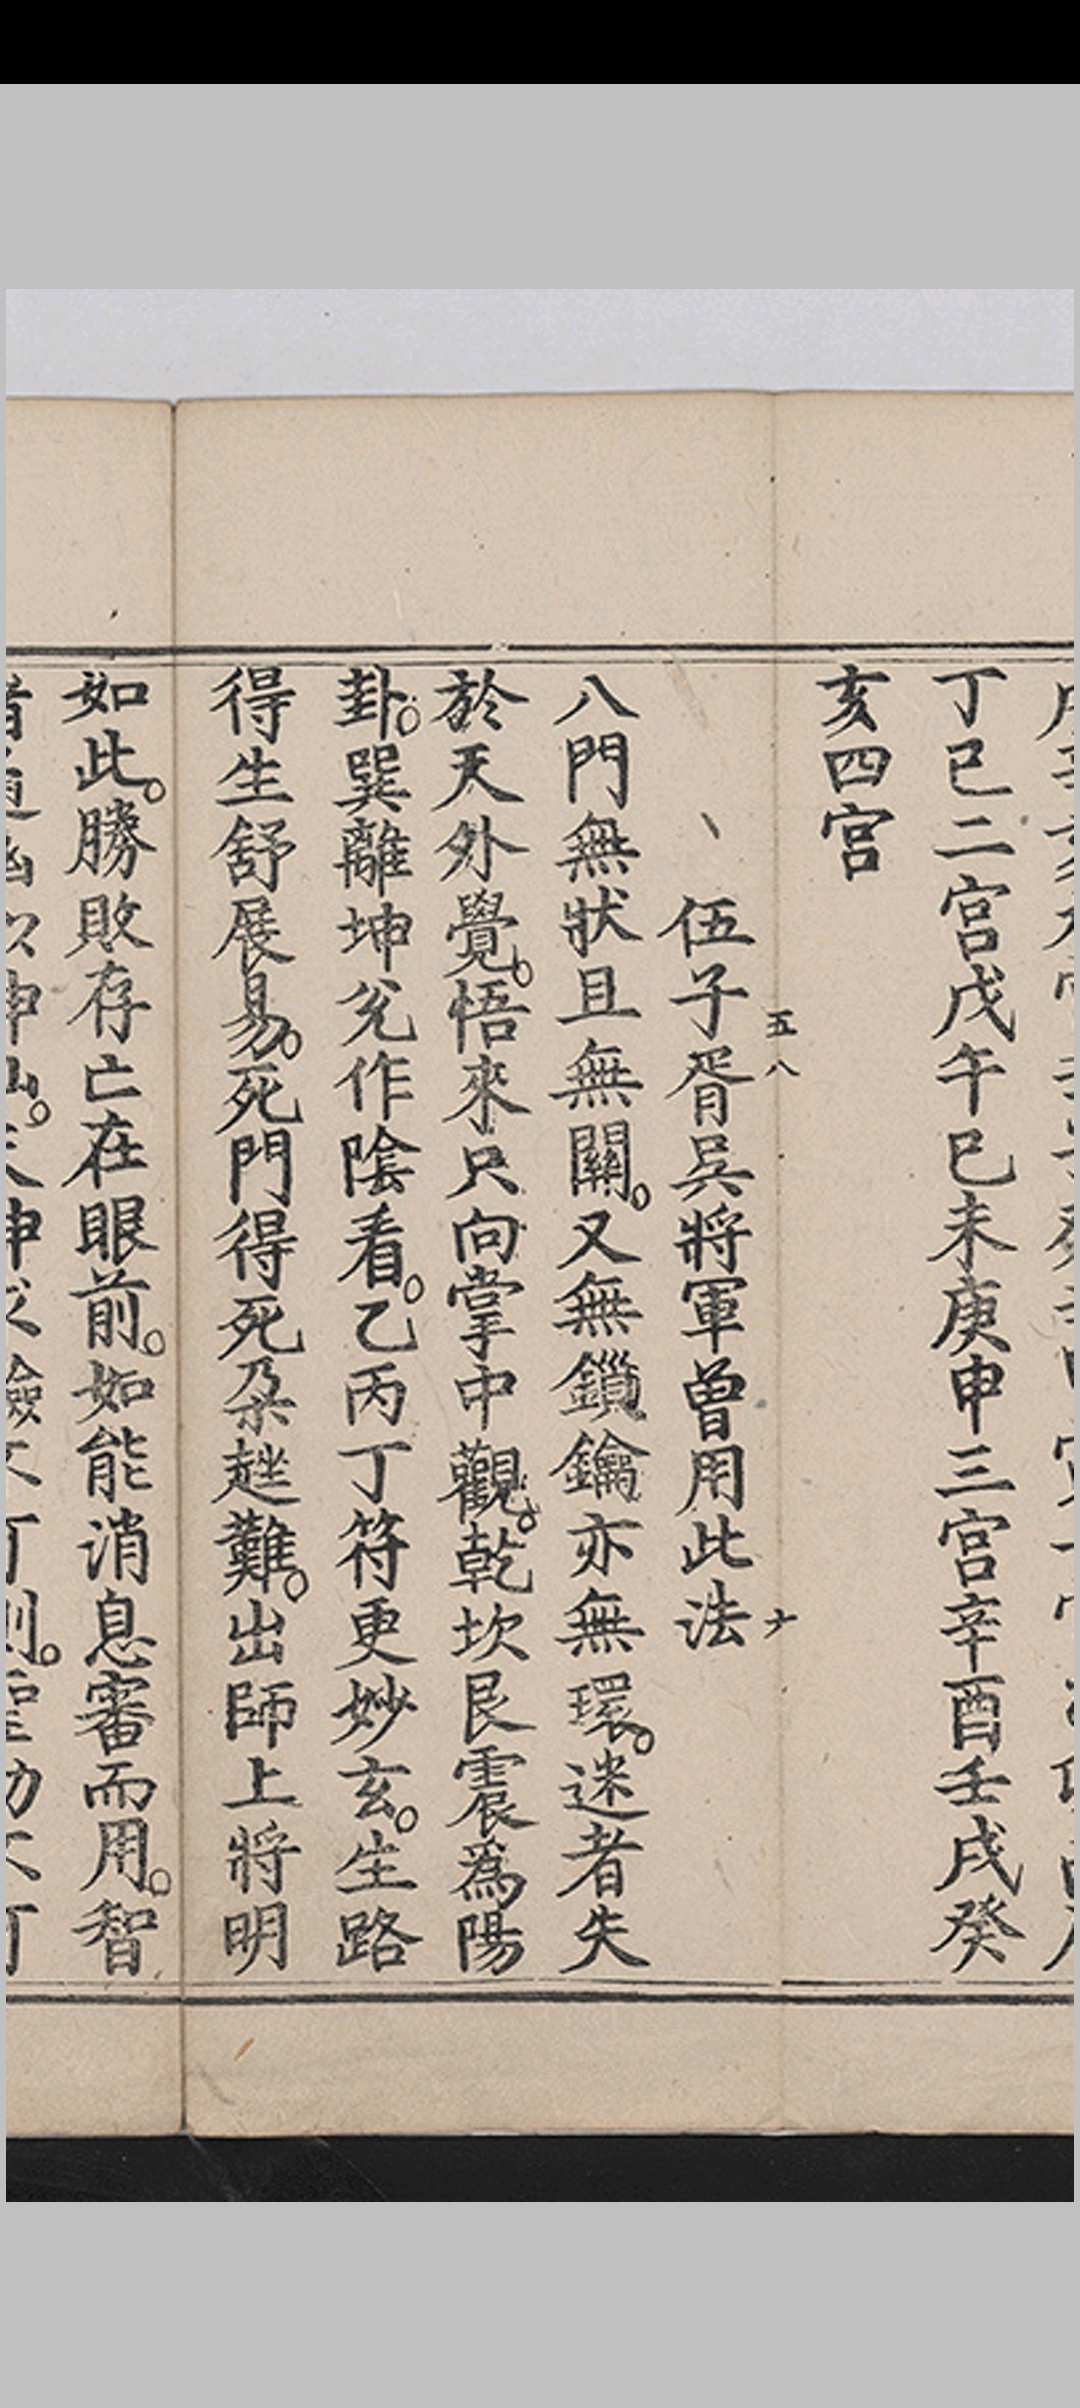 丁巳二宮戊午巳未庚申三宮辛酉壬戌癸
亥四宮
五八
ナ
伍子胥吳將軍曽用此法
八門無狀且無關。又無鏁鑰亦無環。迷者失
於天外覺。悟來只向掌中觀。乾坎艮震爲陽
卦。巽離坤兌作陰看。乙丙丁符更妙玄。生路
得生舒展易。死門得死朶難。出師上將明
如此。勝敗存亡在眼前。如能消息審而用。智